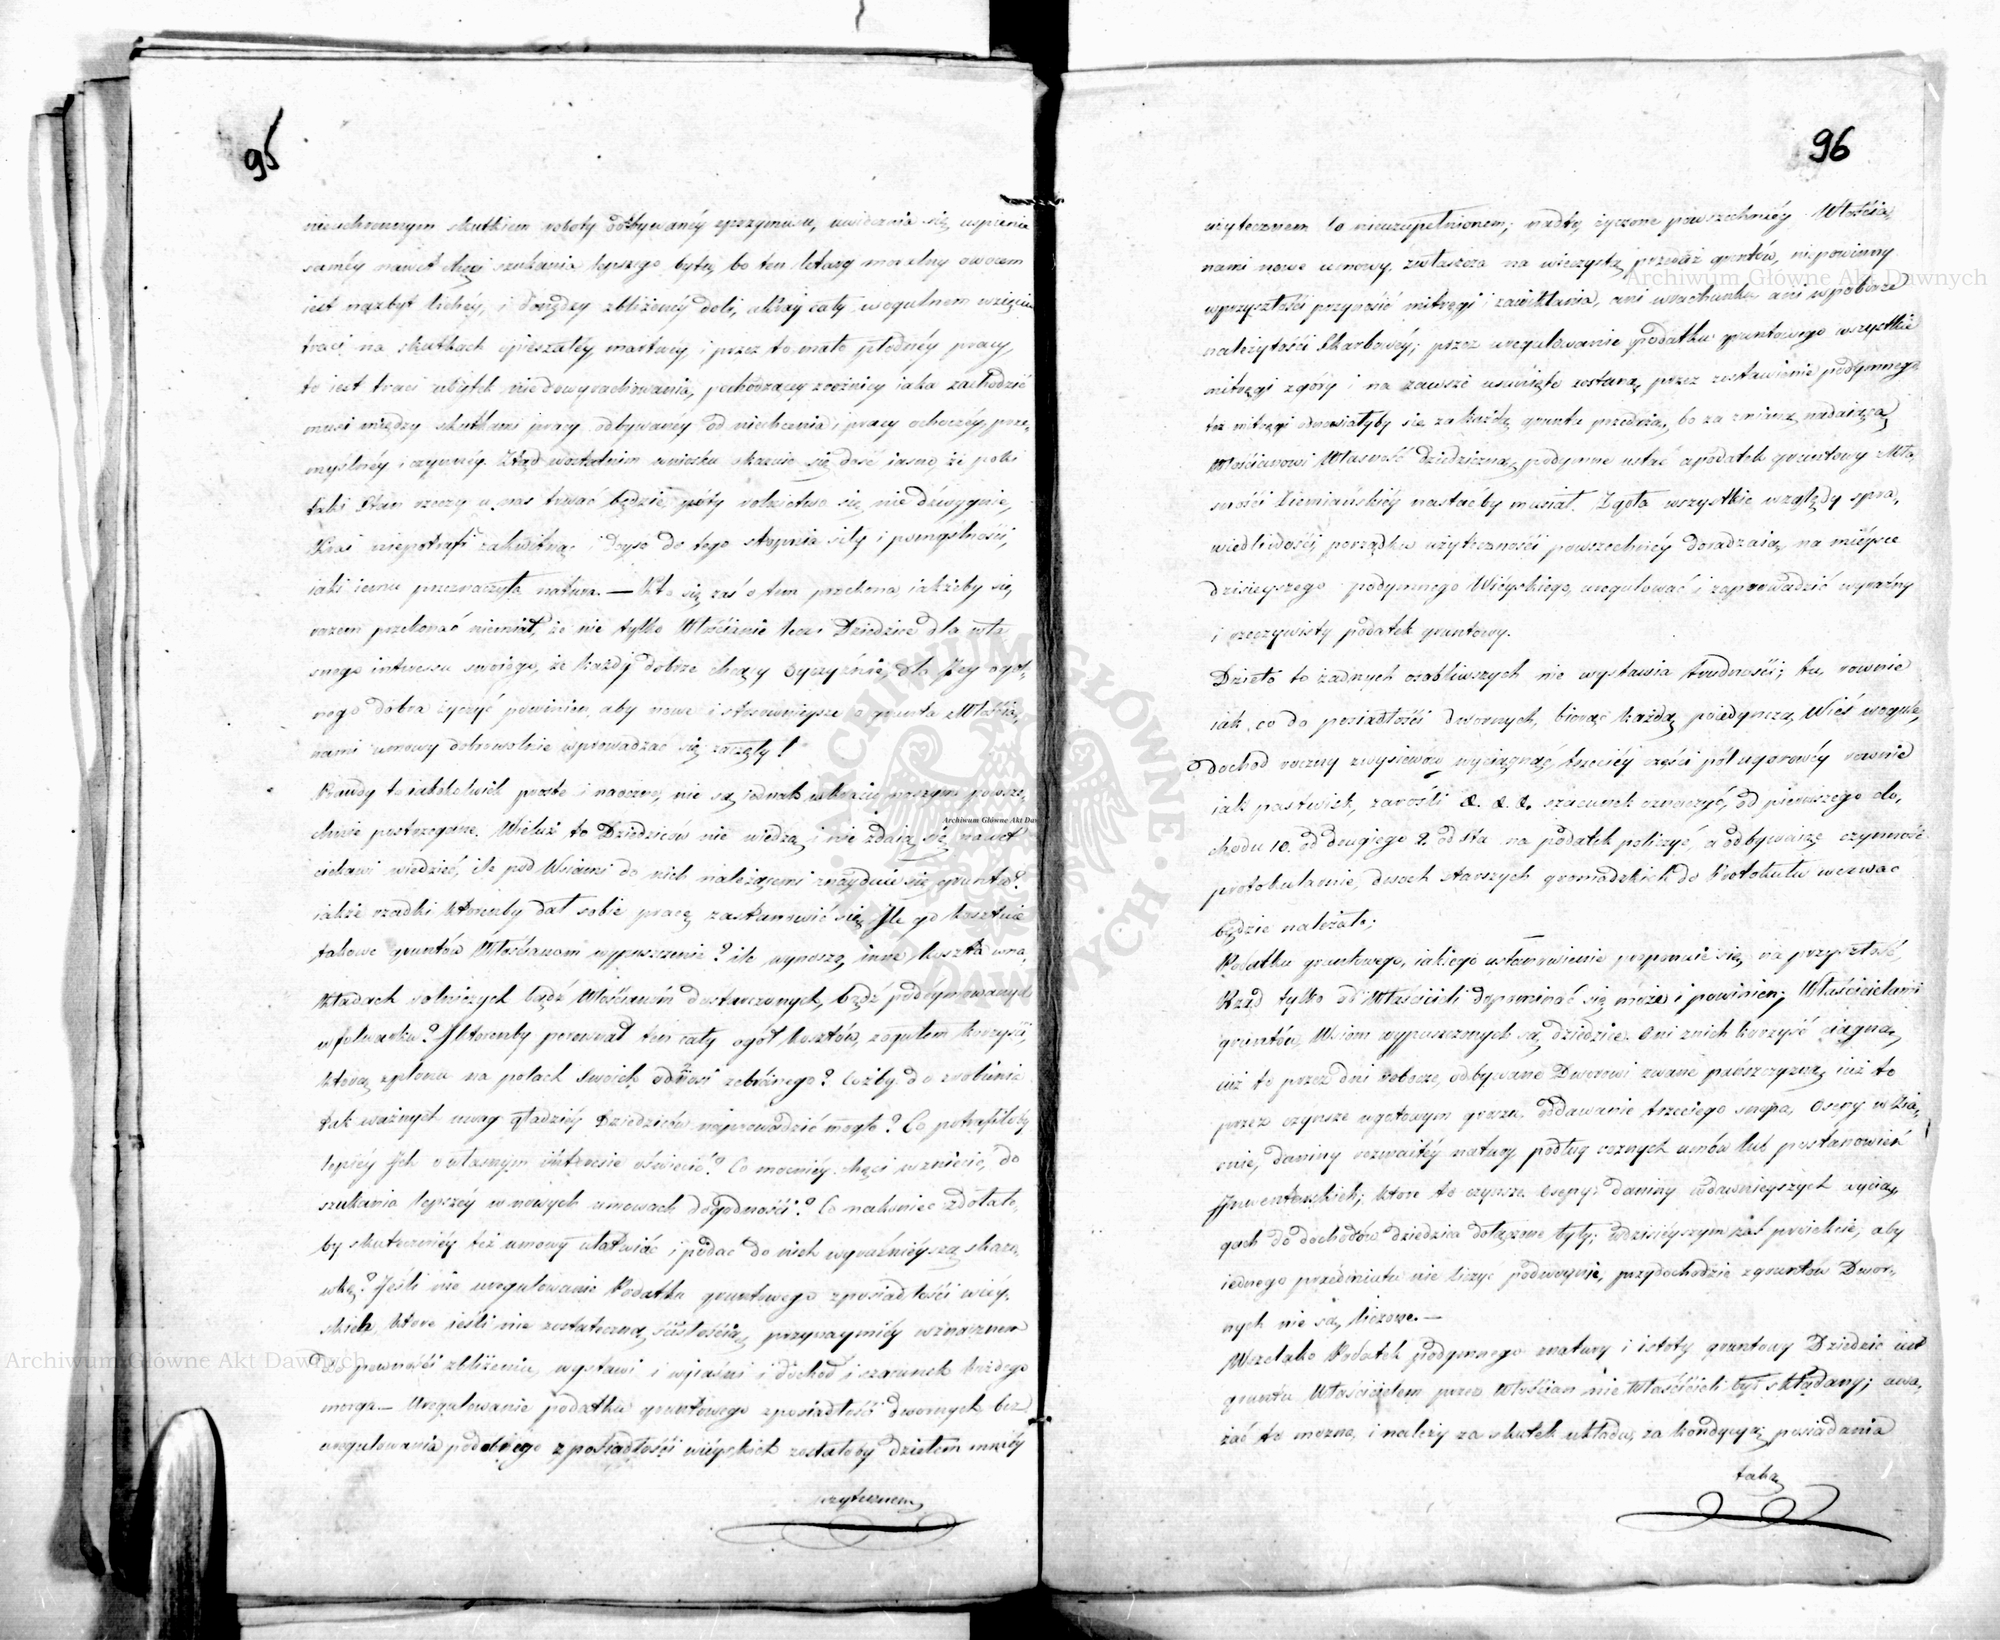 95
nieuchronnym skutkiem roboty odbywanéy zprzymusu, uwidacznia się uspienie
saméy nawet chęci szukania lepszego bytu, bo ten letarg moralny owocem
iest nazbyt lichéy, i do nędzy zbliżonéy doli, a kray cały wogulnem wzięciu
traci na skutkach opieszałéy, martwéy i przez to mało płodnéy pracy,
to iest traci ubytek niedowyrachowania, pochodzący zróżnicy iaka zachodzić
musi między skutkami pracy odbywanéy od niechcenia i pracy ochoczéy, prze,
myślnéy i czynnéy. Ztąd wostatnim wniosku okazuie się dość iasno, że poki
taki Stan rzeczy u nas trwać będzie, póty rolnictwo się nie dźwignie,
Kray niepotrafi zakwitnąć i doyść do tego stopnia siły i pomyślności,
iaki iemu przeznaczyła natura. — Kto się zaś o tem przekona iakżeby się
razem przekonać niemiał, że nie tylko Włościanie lecz i Dziedzice dla wła
snego interessu swoiego, że każdy dobrze chcący Oyczyźnie, dla Jey ogól,
nego dobra życzyć powinien, aby nowe i stosownieysze o grunta z Włościa,
nami umowy dobrowolnie wprowadzać się zaczęły!
Prawdy te iakkolwiek proste i naoczne, nie są iednak wkraiu naszym powsze,
chnie postrzegane. Wieluż to Dziedziców nie wiedzą i nie zdaią się nawet
ciekawi wiedzieć, ile pod Wsiami do nich należącemi znayduie się gruntu?
iakże rzadki którenby dał sobie pracę zastanowić się, Ile go kosztuie
takowe gruntów Włościanom wypuszczenie? ile wynoszą inne koszta wna,
kładach rolniczych bądź Włościanom dostarczonych, bądź podeymowanych
wfolwarku? Którenby porównał ten cały ogół kosztów, zogułem korzyści,
którą zplonu na polach Swoich odnosi zebranego? Cożby do zrobienia
tak ważnych uwag snadniéy Dziedziców naprowadzić mogło? Co potrafiłoby
lepiéy Ich o własnym interesie oświecić? Co mocniéy chęci wzniecić, do
szukania lepszéy wnowych umowach dogodności? Co nakoniec zdołało,
by skuteczniéy też umowy ułatwiać i podać do nich wyraźnieyszą skazó,
wkę? Jeśli nie uregulowanie Podatku gruntowego zposiadłości wiéy,
skich, które ieśli nie zostateczną ścisłością, przynaymniéy wznacznem
do pewności zbliżeniu, wystawi i wyiaśni i dochód i szacunek każdego
morga. — Uregulowanie podatku gruntowego zposiadłości dwornych bez
uregulowania podobnégo z posiadłości wiéyskich zostałoby dziełem mniéy
użytecznem,
96
użytecznem bo nieuzupełnionem; nadto, życzone powszechniéy Włościa,
nami nowe umowy, zwłaszcza na wieczystą przedaż gruntów, nie powinny
wprzyszłości przynosić mitręgi i zawikłania, ani wrachunku, ani w poborze
należytości Skarbowéy; przez uregulowanie podatku gruntowego wszystkie
mitręgi zgóry i na zawsze usunięte zostaną, przez zostawienie podymnego
też mitręgi odnawiałyby się za każdą gruntu przedażą, bo za zmianą nadaiącą,
Włościanowi Własność Dziedziczną, podymne ustać a podatek gruntowy Wła,
sności Ziemiańskiéy nastaćby musiał. Zgoła wszystkie względy spra,
wiedliwości, porządku użyteczności powszechnéy doradzaią, na mieysce
dzisieyszego podymnego Wiéyskiego, uregulować i zaprowadzić wyraźny
i rzeczywisty podatek gruntowy.
Dzieło to żadnych osobliwszych nie wystawia trudności; tu, równie
iak co do posiadłości dwornych, biorąc każdą poiedynczą Wieś wogule,
dochod roczny zwysiewów wyciągnąć, trzeciéy części pól ugorowéy równie
iak pastwisk, zarośli &. &. &. szacunek oznaczyć, od pierwszego do,
chodu 10. od drugiego 2. od Sta na podatek policzyć, a odbywaiąc czynność
protokularnie, dwóch starszych gromadzkich do Protokułu wezwać
będzie należało;
Podatku gruntowego, iakiego ustanowienie proponuie się na przyszłość,
Rząd tylko od Właścicieli dopominać się może i powinien; Właścicielami
gruntów Wsiom wypuszczonych są, dziedzice. Oni z nich korzyść ciągną,
iuż to przez dni robocze, odbywane Dworowi zwane pańszczyzną, iuż to
przez czynsze wgotowym groszu, oddawanie trzeciego snopa, Osepy w Zia,
rnie, daniny rozmaitéy natury podług rocznych umów lub postanowień
Inwentarskich; które to czynsze Osepy i daniny wdawnieyszych wycią,
gach do dochodów dziedzica dołączone były, wdzisieyszym zaś proiekcie, aby
iednego przedmiotu nie liczyć podwóynie, przy dochodzie zgruntów Dwor,
nych nie są, liczone. —
Wszelako Podatek podymnego znatury i istoty gruntowy Dziedzic iest
gruntu Właścicielem przez Włościan nie Właścicieli był składany; uwa,
żać to można, i należy za skutek układu, za kondycyą posiadania
taką